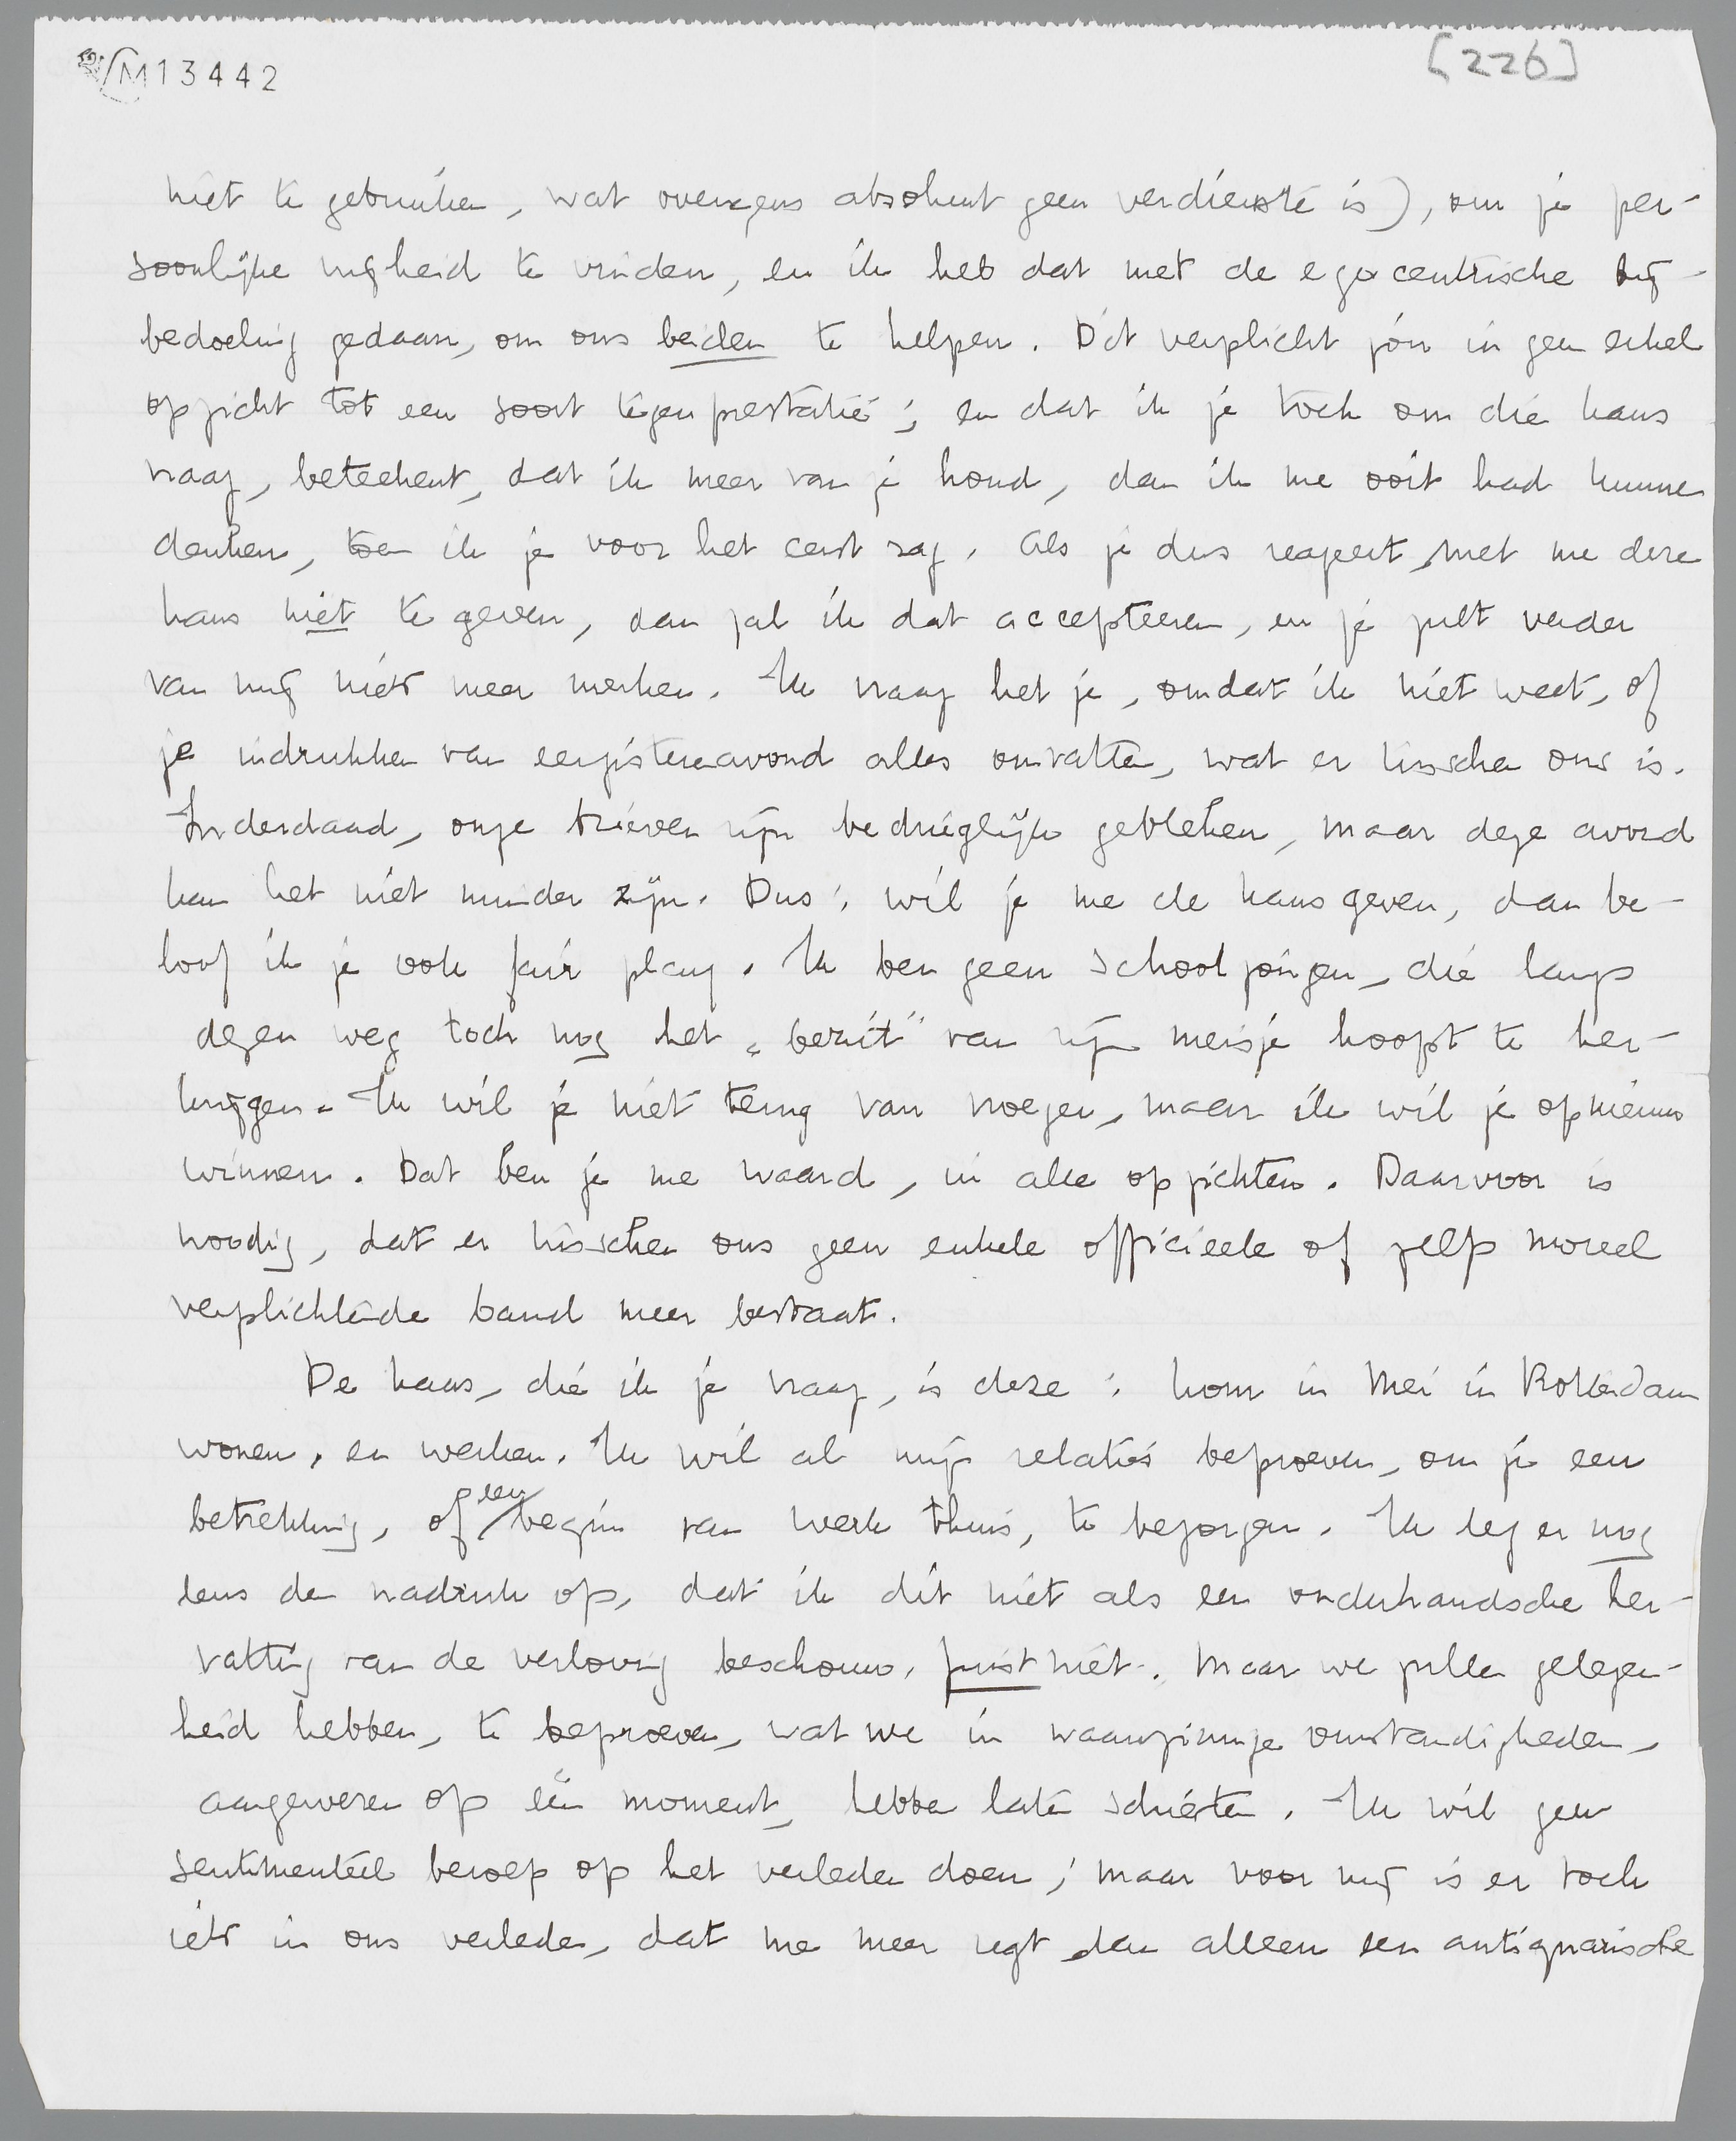 M13442
[226]
niet te gebruiken, wat overigens absoluut geen verdienste is), om je per-
soonlijke vrijheid te vinden, en ik heb dat met de egocentrische bij-
bedoeling gedaan, om ons beiden te helpen. Dit verplicht jou in geen enkel
opzicht tot een soort tegenprestatie; en dat ik je toch om die kans
vraag, beteekent, dat ik meer van je houd, dan ik me ooit had kunnen
denken, toen ik je voor het eerst zag. Als je dus reageert, met me deze
kans niet te geven, dan zal ik dat accepteeren, en je zult verder
van mij niets meer merken. Ik vraag het je, omdat ik niet weet, of
je indrukken van eergisterenavond alles omvatten, wat er tusschen ons is.
Inderdaad, onze brieven zijn bedrieglijk gebleken, maar deze avond
kan het niet minder zijn. Dus: wil je me de kans geven, dan be-
loof ik je ook fair play. Ik ben geen schooljongen, die langs
dezen weg toch nog het „bezit" van zijn meisje hoopt te her-
krijgen. Ik wil je niet terug van vroeger, maar ik wil je opnieuw
winnen. Dat ben je me waard, in alle opzichten. Daarvoor is
noodig, dat er tusschen ons geen enkele officieele of zelfs moreel
verplichtende band meer bestaat.
De kans, die ik je vraag, is deze: kom in Mei in Rotterdam
wonen, en werken. Ik wil al mijn relaties beproeven, om je een
betrekking, of een begin van werk thuis, te bezorgen. Ik leg er nog
eens den nadruk op, dat ik dit niet als een onderhandsche her-
vatting van de verloving beschouw, juist niet. Maar we zullen gelegen-
heid hebben, te beproeven, wat we in waanzinnige omstandigheden,
aangewezen op één moment, hebben laten schieten. Ik wil geen
sentimenteel beroep op het verleden doen; maar voor mij is er toch
iets in ons verleden, dat me meer zegt, dan alleen een antiquarische